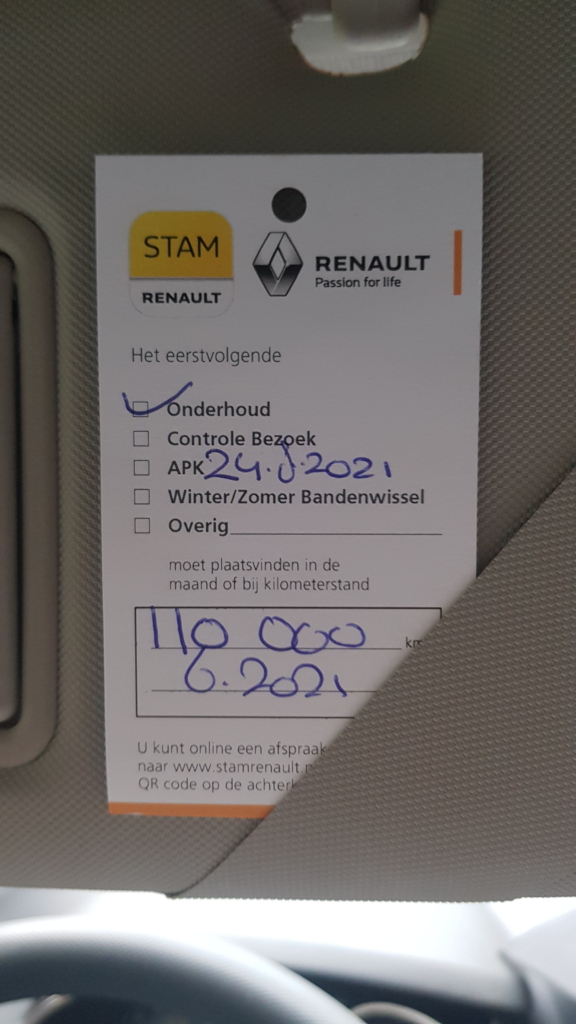 STAM
RENAULT
RENAULT
Passion for life
Het eerstvolgende
Onderhoud
Controle Bezoek
APK 24. .2021
Winter/Zomer Bandenwissel
Overig
moet plaatsvinden in de
maand of bij kilometerstand
110 000 km
6.2021
U kunt online een afspraak
naar www.stamrenault.
QR code op de